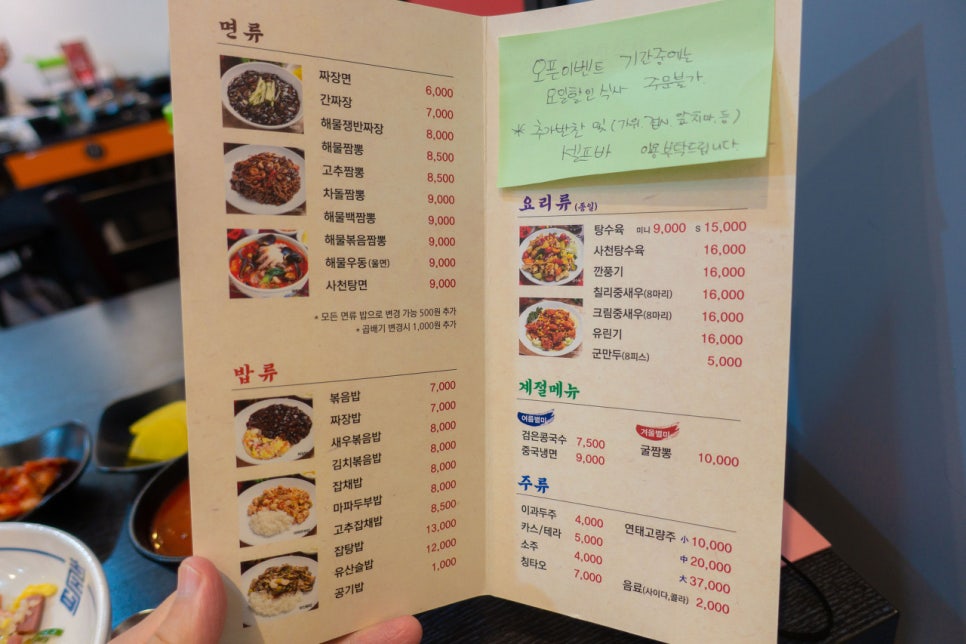 면류
짜장면 6,000
간짜장 7,000
해물쟁반짜장 8,000
해물짬뽕 8,500
고추짬뽕 8,500
차돌짬뽕 9,000
해물백짬뽕 9,000
해물볶음짬뽕 9,000
해물우동(울면) 9,000
사천탕면 9,000
* 모든 면류 밥으로 변경 가능 500원 추가
* 곱배기 변경시 1,000원 추가
밥류
볶음밥 7,000
짜장밥 7,000
새우볶음밥 8,000
김치볶음밥 8,000
잡채밥 8,000
마파두부밥 8,000
고추잡채밥 8,500
잡탕밥 13,000
유산슬밥 12,000
공기밥 1,000
오픈이벤트 기간중에는
요일할인 식사 주문불가
* 추가반찬 및 (가위, 접시, 앞치마, 등)
셀프바 이용 부탁드립니다.
요리류 (종일)
탕수육 미니 9,000 S 15,000
사천탕수육 16,000
깐풍기 16,000
칠리중새우(8마리) 16,000
크림중새우(8마리) 16,000
유린기 16,000
군만두(8피스) 5,000
계절메뉴
여름별미
검은콩국수 7,500
중국냉면 9,000
겨울별미
굴짬뽕 10,000
주류
이과두주 4,000
카스/테라 5,000
소주 4,000
칭타오 7,000
연태고량주 小 10,000
中 20,000
大 37,000
음료(사이다,콜라) 2,000